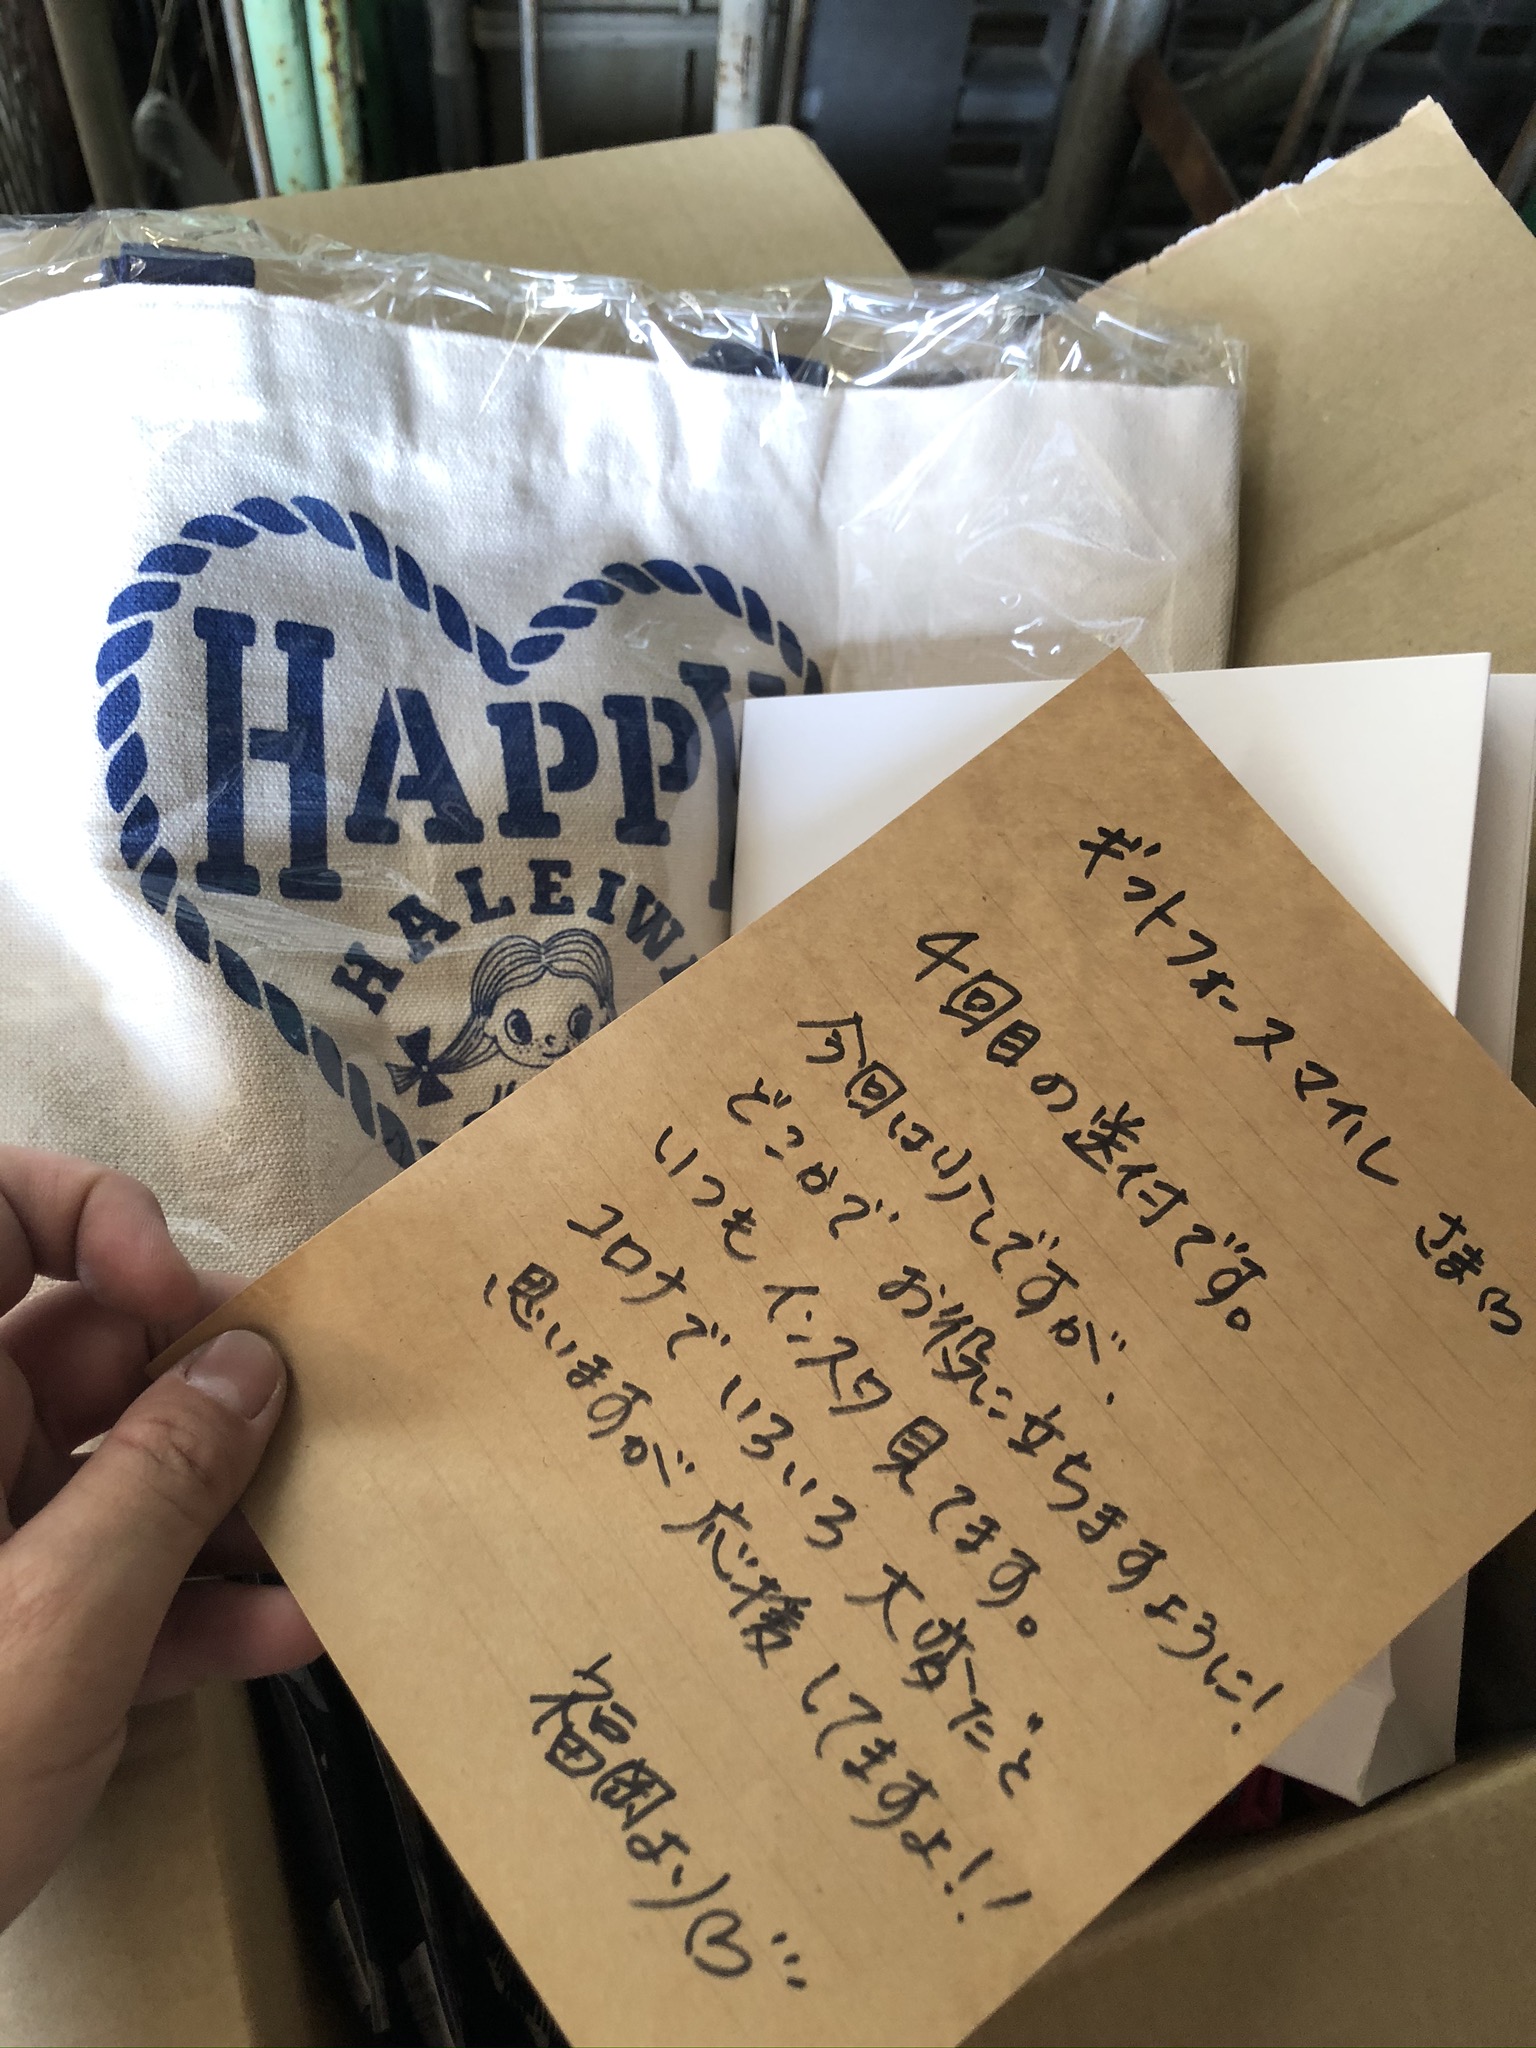 HAPPY
HALEIW
ギフトフォースマイル さま
4回目の送付です。
今回は少しですが、
どこかで お役に立ちますように!
いつも インスタ 見てます。
コロナで いろいろ 大変だと
思いますが 応援 してますよ!!
福岡より